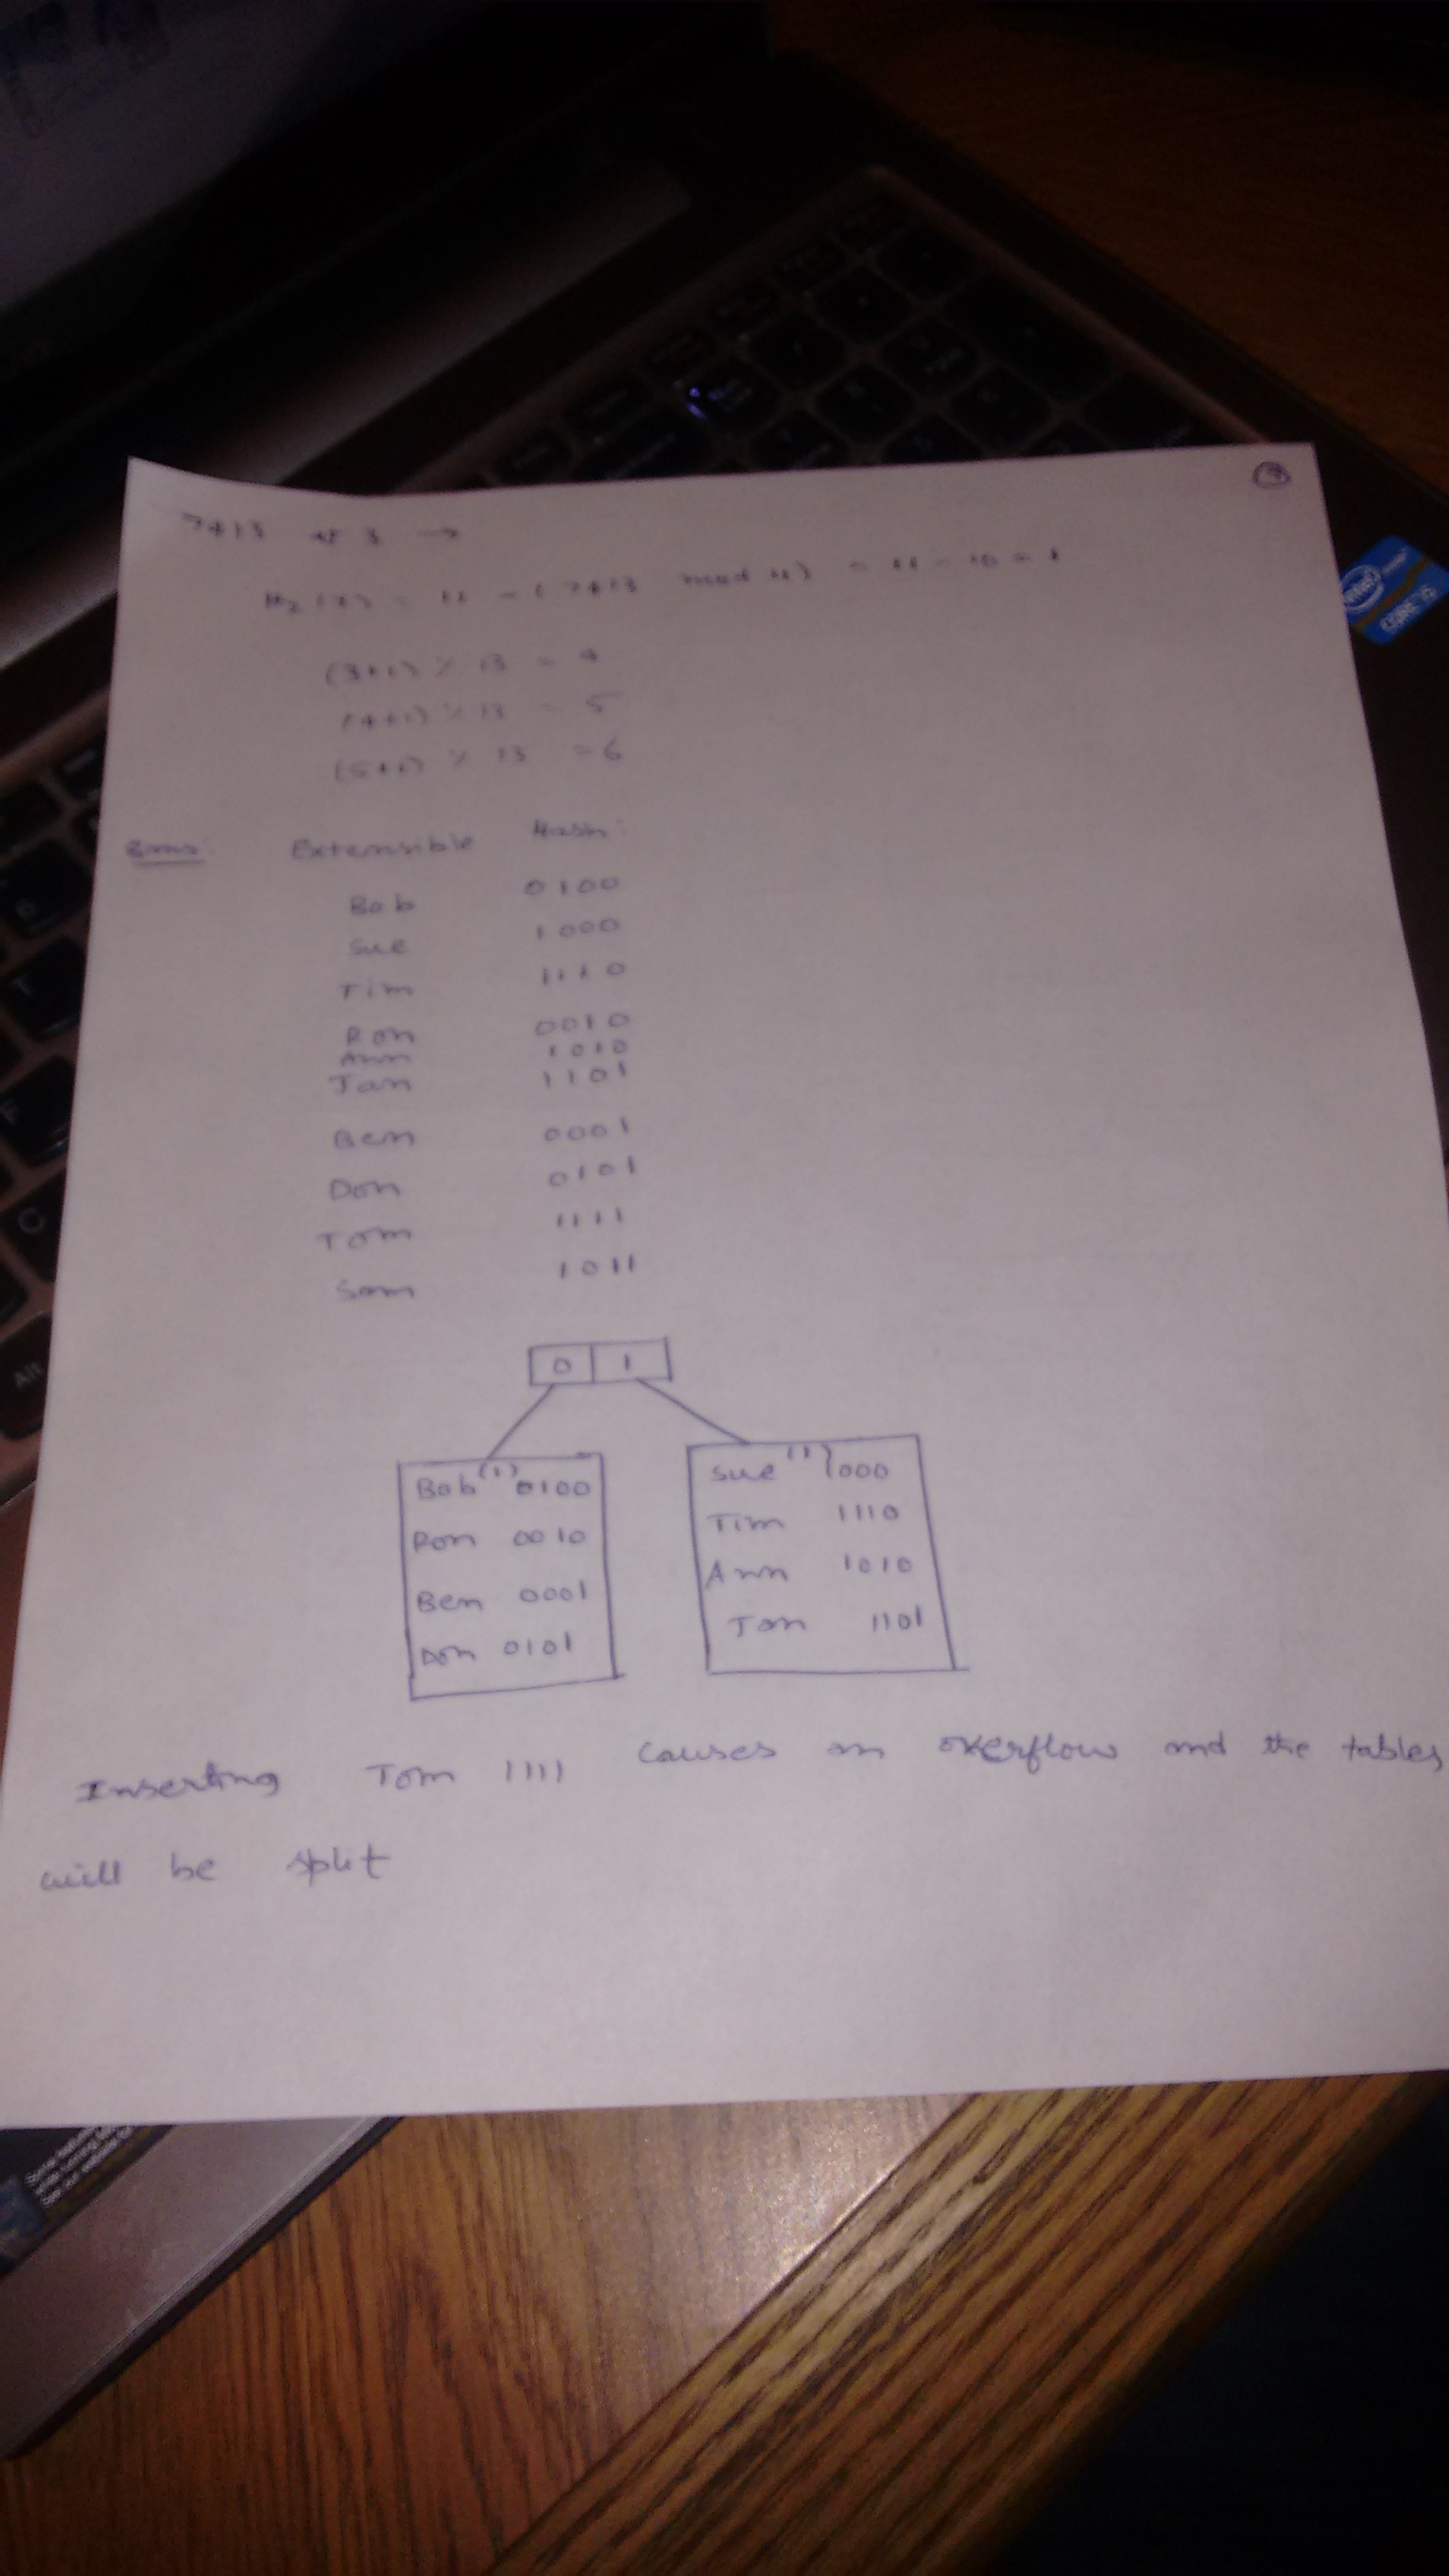 7413 at 3 →
H2(7) = 11 - (7413 mod 11) = 11 - 10 = 1
(3+1) % 13 = 4
(4+1) % 13 = 5
(5+1) % 13 = 6
Extensible Hash:
Bob 0100
Sue 1000
Tim 1110
Ron 0010
Ann 1010
Jan 1101
Ben 0001
Don 0101
Tom 1111
Sam 1011
0 1
Bob (1) 0100
Ron 0010
Ben 0001
Don 0101
Sue (1) 1000
Tim 1110
Ann 1010
Jan 1101
Inserting Tom 1111 causes an overflow and the tables
will be split
intel
CORE i5
Alt